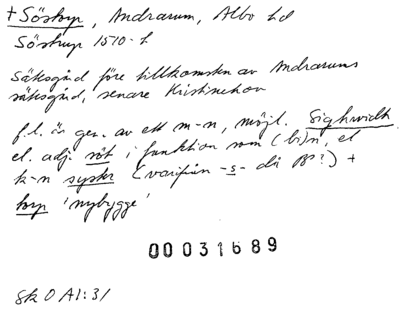 † Söstorp, Andrarum, Albo hd
Söstrup 1510-t
Säksgård före tillkomsten av Andrarums
säksgård, senare Kristinehov
f.l. är gen. av ett m-n, möjl. Sighwidh
el. adj. söt i funktion som (bi)n, el
k-n syster (varifrån -s- då ?) +
torp 'nybygge'
00031689
Sk O A1:31